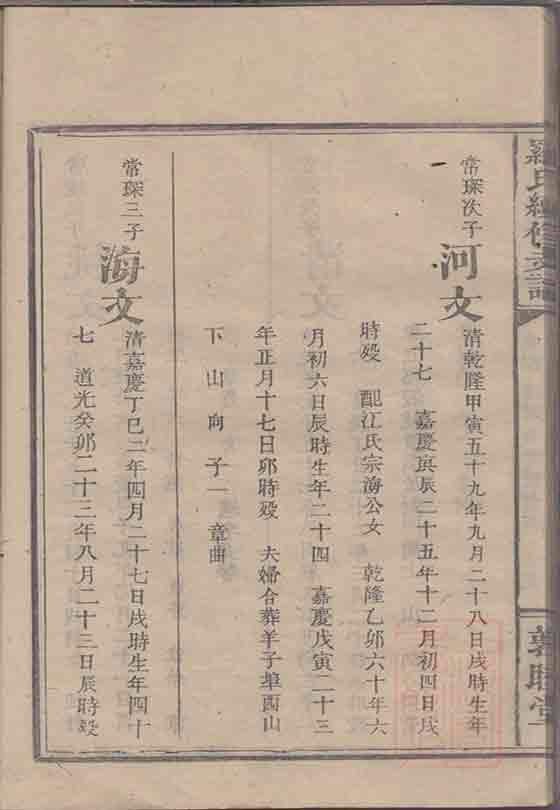 羅氏續修支譜
敦睦堂
常琛次子
河文
清乾隆甲寅五十九年九月二十八日戌時生年
二十七 嘉慶庚辰二十五年十二月初四日戌
時殁 配江氏宗海公女 乾隆乙卯六十年六
月初六日辰時生年二十四 嘉慶戊寅二十三
年正月十七日卯時殁 夫婦合葬羊子埠酉山
下山向子一章曲
常琛三子
海文
清嘉慶丁巳二年四月二十七日戌時生年四十
七 道光癸卯二十三年八月二十三日辰時殁